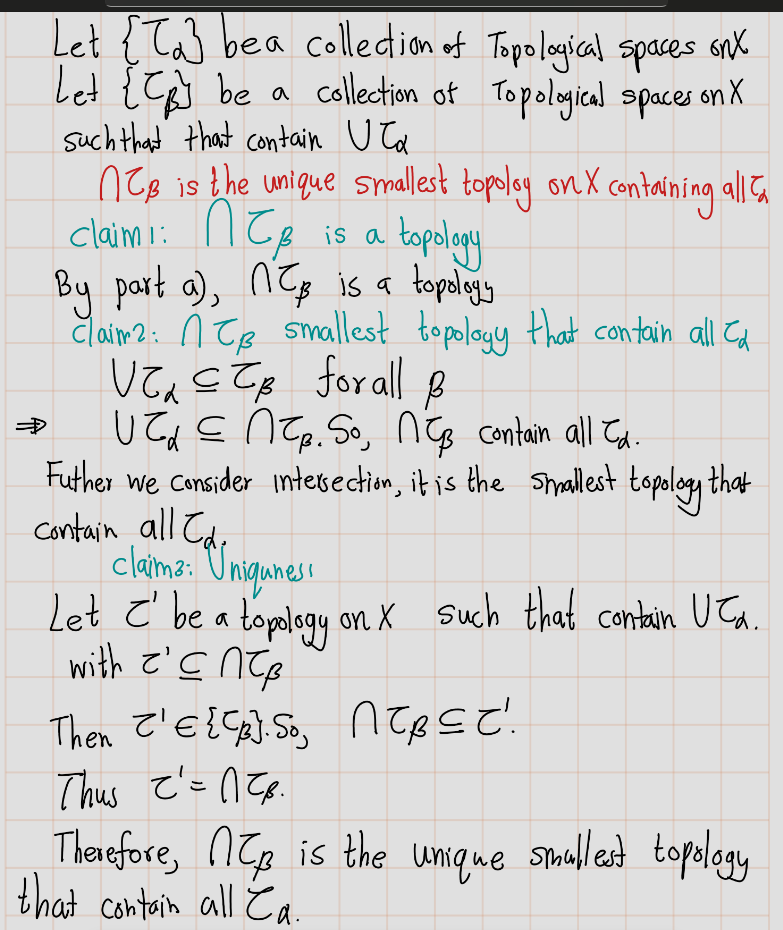 Let {τα} be a collection of Topological spaces on X
Let {τβ} be a collection of Topological spaces on X
such that that contain ∪τα
∩τβ is the unique smallest topoloy on X containing all τα
claim1: ∩τβ is a topology
By part a), ∩τβ is a topology
claim2: ∩τβ smallest topology that contain all τα
∪τα ⊆ τβ for all β
⇒ ∪τα ⊆ ∩τβ. So, ∩τβ contain all τα.
Futher we consider intersection, it is the smallest topology that
contain all τα.
claim3: Uniquness
Let τ' be a topology on X such that contain ∪τα.
with τ' ⊆ ∩τβ
Then τ' ∈ {τβ}. So, ∩τβ ⊆ τ'.
Thus τ' = ∩τβ.
Therefore, ∩τβ is the unique smallest topology
that contain all τα.